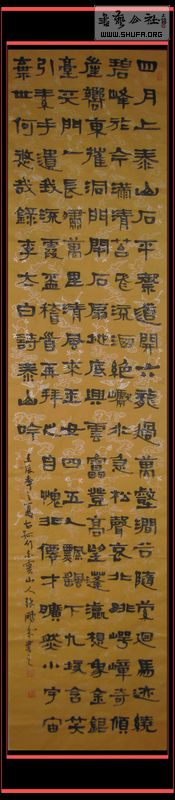 书艺公社
WWW.SHUFA.ORG
四月上泰山石平禦道開六龍過萬壑澗谷隨萦迴馬迹繞
碧峰於今滿清苔飛流洒絕巘水急松聲哀北眺崿嶂奇傾
崖嚮東摧洞門閉石扇地底興雲雷登高望蓬瀛想象金銀
臺天門一長嘯萬里清風來玉女四五人飄颻下九垓含笑
引素手遺我流霞盃稽首再拜之自愧非僊才曠然小宇宙
棄世何悠哉錄李太白詩泰山吟